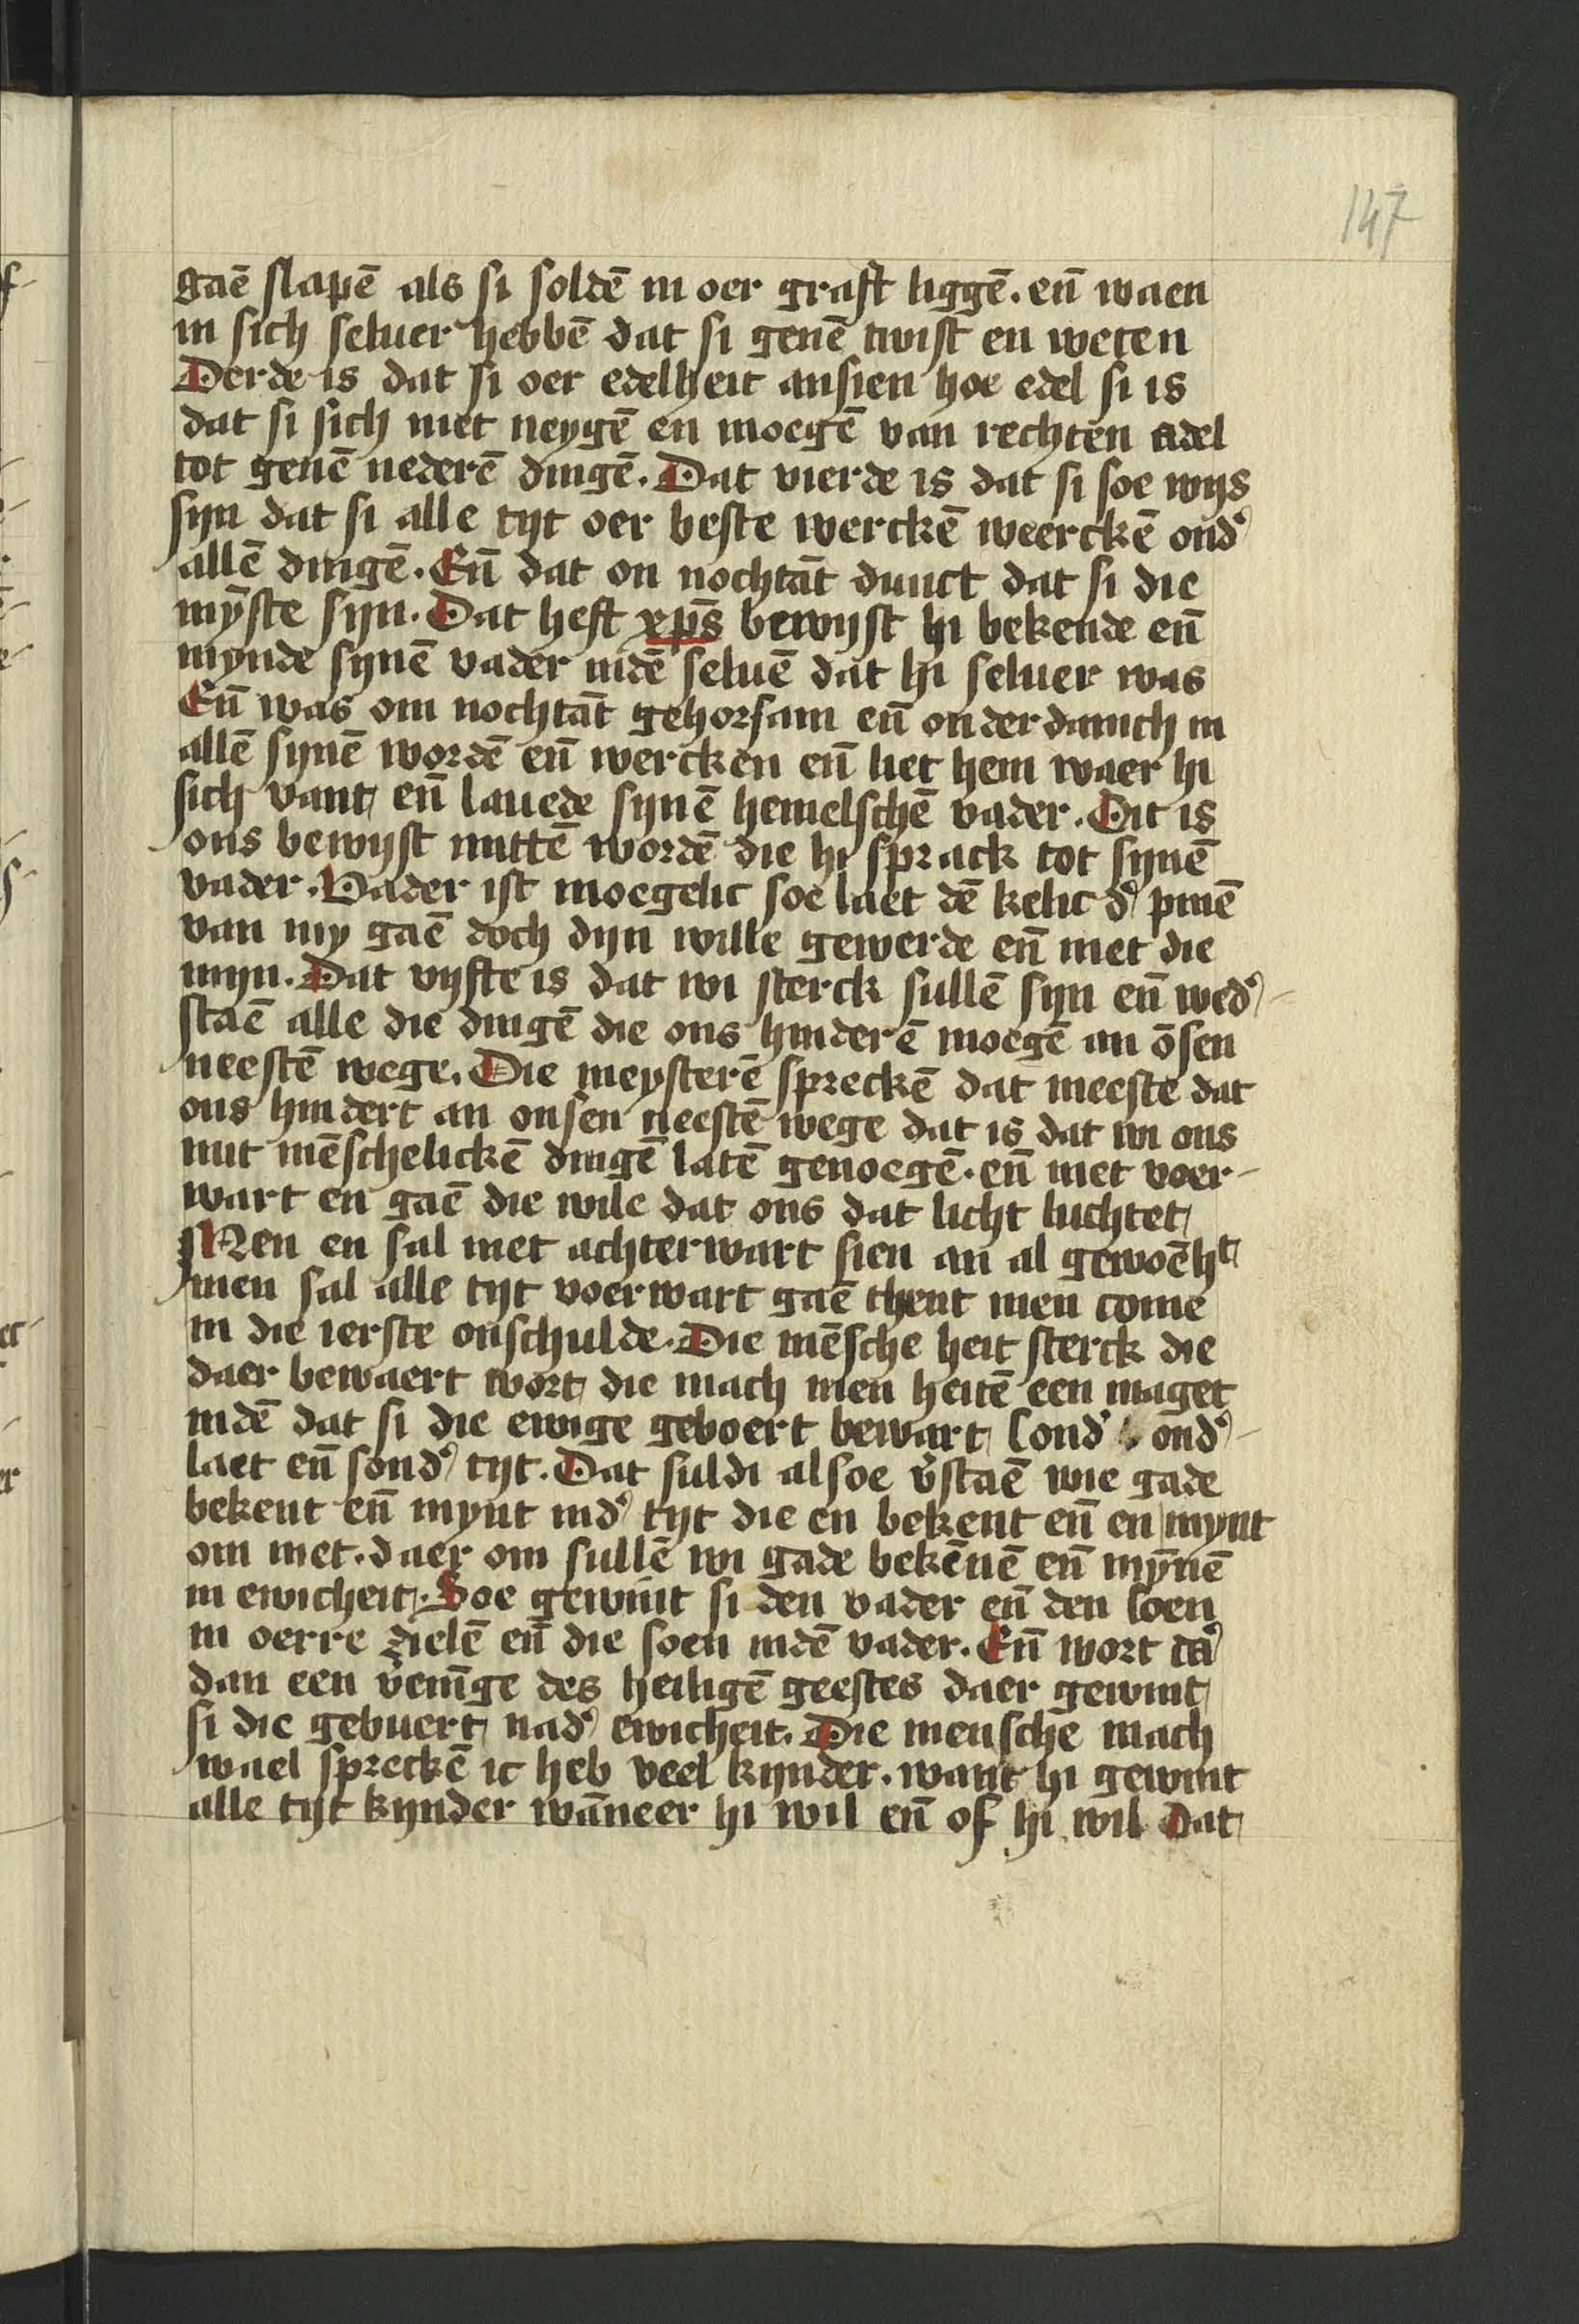 147
gaē slapē als si soldē in oer graft liggē. en̄ waen
in sich seluer hebbē dat si genē twist en weten
Derde is dat si oer edelheit ansien hoe edel si is
dat si sich niet neygē en moegē van rechten adel
tot genē nederē dingē. Dat vierde is dat si soe wijs
sijn dat si alle tijt oer beste werckē weerckē ond᾽
allē dingē. En̄ dat on nochtāt dunct dat si die
mȳste sijn. Dat heft xp̄s bewijst hi bekende en̄
mynde sijnē vader indē seluē dat hi seluer was
En̄ was om nochtāt gehorsam en̄ onderdanich in
allē sijnē wordē en̄ wercken en̄ liet hem waer hi
sich vant en̄ lauede sijnē hemelschē vader. Dit is
ons bewijst mittē wordē die hi sprack tot sijnē
vader. Vader ist moegelic soe laet dē kelic d᾽ pinē
van my gaē doch dijn wille gewerde en̄ niet die
mijn. Dat vijfte is dat wi sterck sullē sijn en̄ wed᾽-
staē alle die dingē die ons hinderē moegē an ōsen
neestē wege. Die meysterē spreckē dat meeste dat
ons hindert an onsen neestē wege dat is dat wi ons
mit mēschelickē dingē latē genoegē. en̄ niet voer-
wart en gaē die wile dat ons dat licht luchtet
Men en sal niet achterwart sien an al gewoēht
men sal alle tijt voerwart gaē thent men come
in die ierste onschulde. Die mēsche heit sterck die
daer bewaert wort die mach men heitē een maget
indē dat si die ewige geboert bewart sond᾽ ond᾽-
laet en̄ sond᾽ tijt. Dat suldi alsoe v᾽staē wie gade
bekent en̄ mynt ind᾽ tijt die en bekent en̄ en mynt
om niet. daer om sullē wi gade bekēnē en̄ mȳnē
in ewicheit. Soe gewint si den vader en̄ den soen
in oerre zielē en̄ die soen indē vader. En̄ wort da᾽
dan een v᾽enīge des heiligē geestes daer gewint
si die gebuert nad᾽ ewicheit. Die mensche mach
wael spreckē ic heb veel kijnder. want hi gewint
alle tijt kijnder wāneer hi wil en̄ of hi wil Dat